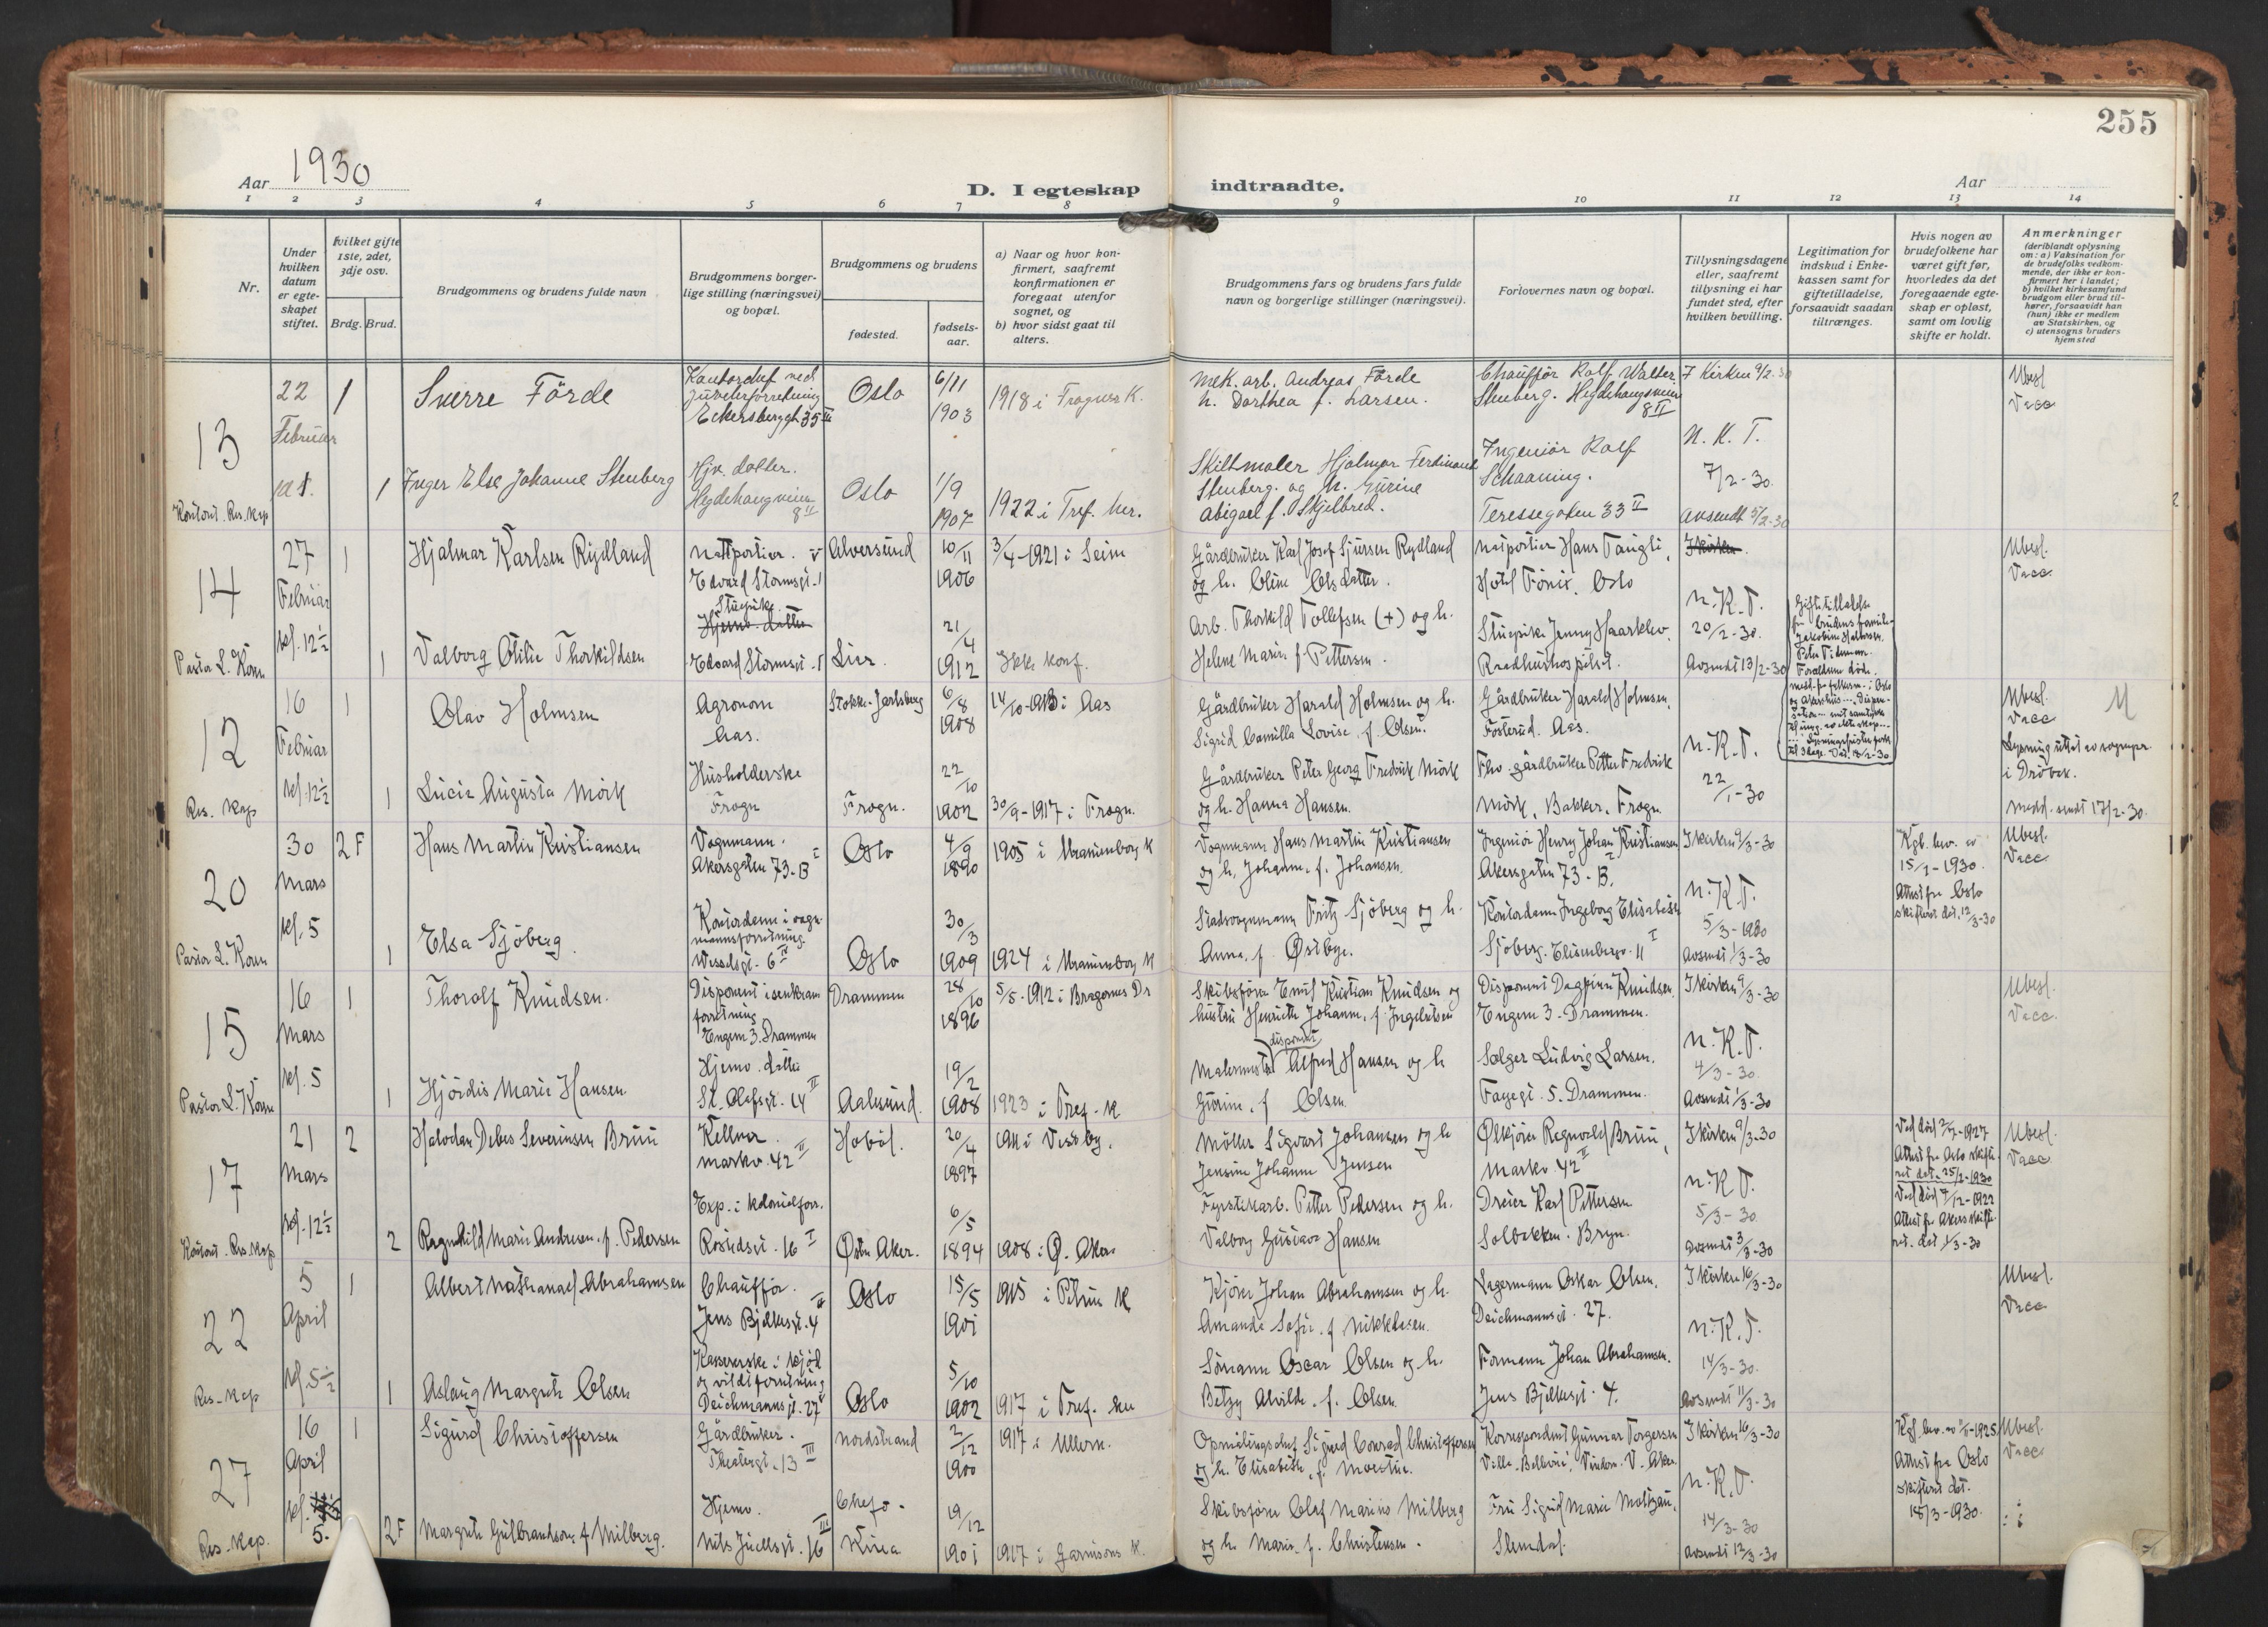 255
Aar 1930
D. I egteskap indtraadte.
Aar
1 2 3 4 5 6 7 8 9 10 11 12 13 14
Nr.
Under hvilken datum er egteskapet stiftet.
hvilket gifte 1ste, 2det, 3dje osv.
Brdg. Brud.
Brudgommens og brudens fulde navn
Brudgommens borgerlige stilling (næringsvei) og bopæl.
Brudgommens og brudens
fødested.
fødselsaar.
a) Naar og hvor konfirmert, saafremt konfirmationen er foregaat utenfor sognet, og
b) hvor sidst gaat til alters.
Brudgommens fars og brudens fars fulde navn og borgerlige stillinger (næringsvei).
Forlovernes navn og bopæl.
Tillysningsdagene eller, saafremt tillysning ei har fundet sted, efter hvilken bevilling.
Legitimation for indskud i Enkekassen samt for giftetilladelse, forsaavidt saadan tiltrænges.
Hvis nogen av brudefolkene har været gift før, hvorledes da det foregaaende egteskap er opløst, samt om lovlig skifte er holdt.
Anmerkninger
(deriblandt oplysning om: a) Vaksination for de brudefolks vedkommende, der ikke er konfirmert her i landet; b) hvilket kirkesamfund brudgom eller brud tilhører, forsaavidt han (hun) ikke er medlem av Statskirken, og c) utensogns bruders hjemsted
13
22 Februar
1
Sverre Förde
Eckersbergsgt 35 III
Oslo
6/11 1903
1918 i Frogner K.
Mek. arb. Andreas Förde
h. Dorthea f. Larsen.
Chaufför Rolf Walter
Stenberg. Hegdehaugsveien
8 II
I Kirken 9/2-30
Ubesl.
Vacc
1
Inger Else Johanne Stenberg
Hjv. datter.
Hegdehaugveien
8 II
Oslo
1/9 1907
1922 i Tref. her.
Skiltmaler Hjalmar Ferdinand
Stenberg. og h. Gurine
Abigael f. Skjelbred.
Ingeniör Rolf
Schaaning.
Teressegaten 33 II
N. K. T.
7/2-30.
Avsendt 5/2-30
Res. kap
14
27 Februar
kl. 12½
Pastor L. Koren
1
Hjalmar Karlsen Rydland
Nattportier.
Edvard Stormsgt. 1
Alversund
10/11 1906
3/4-1921 i Seim
Gårdbruker Karl Josef Sjursen Rydland
og h. Oline Olsdatter.
Hotel Fönix. Oslo
I kirken.
Ubesl.
Vacc.
1
Valborg Otilie Thorkildsen
Stuepike
Hjemv. datter
Edvard Stormsgt. 1
Lier.
21/4 1912
Ikke konf.
Arb. Thorkild Tollefsen (+) og h.
Helene Marie f. Pettersen.
Stuepike Jenny Haarklev.
N. K. T.
20/2-30.
Avsendt 13/2-30
Giftetilladelse
12
16 Februar
kl. 12½
Res. Kap
1
Olav Holmsen
Agronom
Aas.
Stokke. Jarlsberg
6/8 1908
Gårdbruker Harald Holmsen og h.
Sigrid Camilla Lovise f. Olsen.
Gårdbruker Harald Holmsen.
Fosterud. Aas.
Ubesl.
Vacc
M
1
Lucie Augusta Mörk
Husholderske
Frogn
Frogn.
22/10 1902
30/9-1917 i Frogn.
Gårdbruker Peter Georg Fredrik Mörk
og h. Hanna Hansen.
Fhv. gårdbruker Petter Fredrik
Mörk, Bakker. Frogn.
N. K. T.
22/1-30
i Dröbak.
Medd. sendt 17/2-30.
20
30 Mars
kl. 5
Pastor L. Koren
2 F
Hans Martin Kristiansen
Vognmann.
Akersgaten 73-B I
Oslo
4/9 1890
1905 i Uranienborg K
Vognmann Hans Martin Kristiansen
og h. Johanne f. Johansen.
Ingeniör Henry Johan Kristiansen
Akersgaten 73-B. I
I kirken 9/3-30
15/1-1930.
Attest fra Oslo
skifterett dat. 12/3-30
Ubesl.
Vacc
1
Elsa Sjöberg.
Kontordame i vogn-
mannsforretning.
Wesselsgt. 6 IV
Oslo
30/3 1909
1924 i Uranienborg K
Stadsvognmann Fritz Sjöberg og h.
Anna, f. Østbye.
Kontordame Ingeborg Elisabeth
Sjöberg. Elisenbergv. 11 I
N. K. T.
5/3-1930
Avsendt 1/3-30
15
16 Mars
kl. 5
Pastor L. Koren
1
Thoralf Knudsen.
Disponent i isenkram
forretning
Engene 3. Drammen
Drammen
28/10 1896
5/5-1912 i Bragernes Dr
Skibsförer Emil Kristian Knudsen og
hustru Henriette Johanne, f. Ingebretsen
Disponent Dagfinn Knudsen.
Engene 3. Drammen.
I kirken 9/3-30
Ubesl.
Vacc.
1
Hjördis Marie Hansen
Hjemv. datter
St. Olafsgt. 14 II
Aalesund.
19/2 1908
1923 i Tref. K
disponent
Malermester Alfred Hansen og h
Gurine, f Olsen
Selger Ludvig Larsen.
Fayegt. 5. Drammen.
N. K. T.
4/3-30.
Avsendt 1/3-30
17
21 Mars
kl. 12½
Res. kap
2
Halvdan Debes Severinsen Bruu
Kellner.
Markv. 42 II
Hoböl.
20/4 1897
1911 i Vestby.
Möller Sigvart Johansen og h
Jensine Johanne Jensen
Ølkjörer Regnvald Bruu,
Markv. 42 II
I kirken 9/3-30
Attest fra Oslo skifte-
ret dat. 25/2-1930
Ubesl.
Vacc
2
Ragnhild Marie Andresen. f. Pedersen
Exp. i kolonialforr.
Rostedsgt. 16 I
Østre Aker.
6/5 1894
1908 i Ø. Aker
Fyrstikarb. Petter Pedersen og h.
Valborg Gustava Hansen
Dreier Karl Pettersen
Solbakken. Bryn.
N. K. T.
5/3-30
Avsendt 3/3-30
Ved död 7/12-1922
Attest fra Akers skifte-
ret. dat 1/3-30
22
5 April
kl. 5½
Res. Kap
1
Albert Nathanael Abrahamsen
Chaufför.
Jens Bjelkesgt. 4
Oslo
15/5 1901
1915 i Petrus K
Kjörer Johan Abrahamsen og h.
Amanda Sofie. f Nikklasen.
Lagermann Oskar Olsen.
Deichmannsgt. 27.
I kirken 16/3-30
Ubesl.
Vacc
1
Aslaug Margrete Olsen
Kassererske i kjöd
og vildtforretning
Deichmannsgt. 27
Oslo
5/10 1902
1917 i Tref. her
Sömann Oscar Olsen og h.
Betzy Alvilde. f. Olsen.
Formann Johan Abrahamsen.
Jens Bjelkesgt. 4.
N. K. T.
14/3-30.
Avsendt 11/3-30
27
16 April
kl. 5.
Res. Kap.
1
Sigurd Christoffersen
Gårdbruker.
Theatergt. 13 III
Nordstrand
2/12 1900
1917 i Ullern.
Opmålingschef Sigurd Conrad Christoffersen
og h. Elisabeth, f. Moestue.
Korrespondent Gunnar Torgersen
I kirken 16/3-30
Attest fra Oslo
skifteret dat.
18/3-1930.
Ubesl.
Vacc
2 F
Margrete Gulbrandsen f Milberg.
Hjemv.
Nils Juelsgt. 16 III
Chefo.
Kina
19/12 1901
1917 i Garnisons K.
Skibsförer Olaf Marius Milberg
og h. Marie. f. Christensen.
Fru Sigrid Marie Moltzau,
Slemdal.
N. K. T.
14/3-30
Avsendt 12/3-30